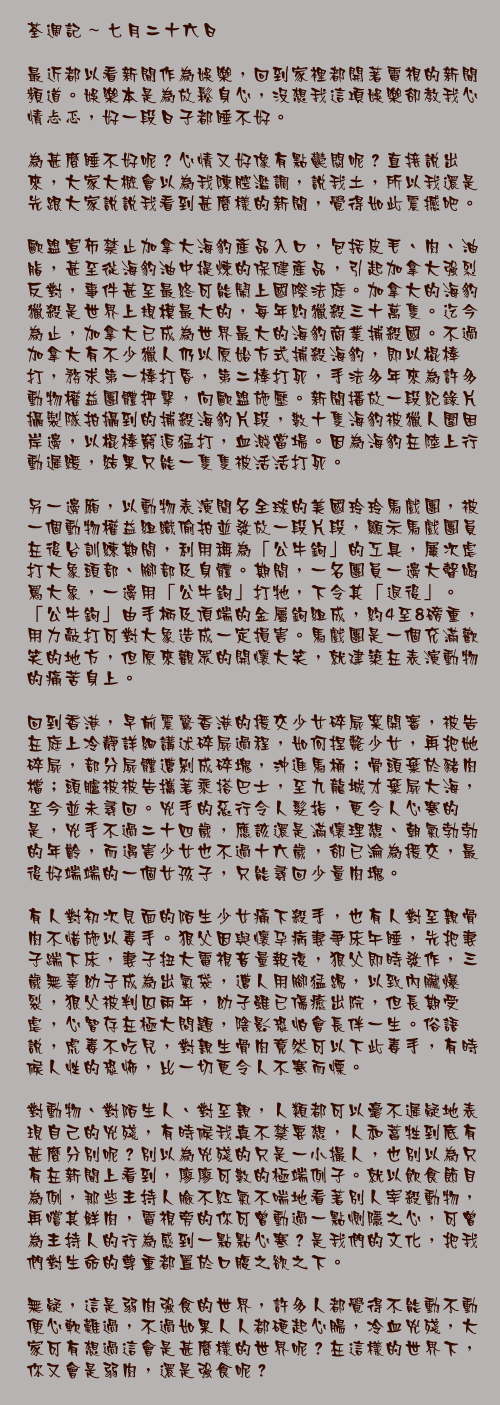 荃週記～七月二十六日
最近都以看新聞作為娛樂，回到家裡都開著電視的新聞
頻道。娛樂本是為放鬆身心，沒想我這項娛樂卻教我心
情忐忑，好一段日子都睡不好。
為甚麼睡不好呢？心情又好像有點鬱悶呢？直接說出
來，大家大概會以為我陳腔濫調，說我土，所以我還是
先跟大家說說我看到甚麼樣的新聞，覺得如此震撼吧。
歐盟宣布禁止加拿大海豹產品入口，包括皮毛、肉、油
脂，甚至從海豹油中提煉的保健產品，引起加拿大強烈
反對，事件甚至最終可能鬧上國際法庭。加拿大的海豹
獵殺是世界上規模最大的，每年約獵殺三十萬隻。迄今
為止，加拿大已成為世界最大的海豹商業捕殺國。不過
加拿大有不少獵人仍以原始方式捕殺海豹，即以棍棒
打，務求第一棒打昏，第二棒打死，手法多年來為許多
動物權益團體抨擊，向歐盟施壓。新聞播放一段紀錄片
攝製隊拍攝到的捕殺海豹片段，數十隻海豹被獵人圍困
岸邊，以棍棒窮追猛打，血濺當場。因為海豹在陸上行
動遲緩，結果只能一隻隻被活活打死。
另一邊廂，以動物表演聞名全球的美國玲玲馬戲團，被
一個動物權益組織偷拍並發放一段片段，顯示馬戲團員
在後台訓練期間，利用稱為「公牛鉤」的工具，屢次虐
打大象頭部、腳部及身體。期間，一名團員一邊大聲喝
罵大象，一邊用「公牛鉤」打牠，下令其「退後」。
「公牛鉤」由手柄及頂端的金屬鉤組成，約4至8磅重，
用力敲打可對大象造成一定損害。馬戲團是一個充滿歡
笑的地方，但原來觀眾的開懷大笑，就建築在表演動物
的痛苦身上。
回到香港，早前震驚香港的援交少女碎屍案開審，被告
在庭上冷靜詳細講述碎屍過程，如何捏斃少女，再把她
碎屍，部分屍體遭剁成碎塊，沖進馬桶；骨頭棄於豬肉
檔；頭顱被被告攜著乘搭巴士，至九龍城才棄屍大海，
至今並未尋回。兇手的惡行令人髮指，更令人心寒的
是，兇手不過二十四歲，應該還是滿懷理想、朝氣勃勃
的年齡，而遇害少女也不過十六歲，卻已淪為援交，最
後好端端的一個女孩子，只能尋回少量肉塊。
有人對初次見面的陌生少女痛下殺手，也有人對至親骨
肉不惜施以毒手。狠父因與懷孕病妻爭床午睡，先把妻
子踹下床，妻子扭大電視音量報復，狠父即時發作，三
歲無辜幼子成為出氣袋，遭人用腳猛踢，以致內臟爆
裂，狠父被判囚兩年，幼子雖已傷癒出院，但長期受
虐，心智存在極大問題，陰影恐怕會長伴一生。俗語
說，虎毒不吃兒，對親生骨肉竟然可以下此毒手，有時
候人性的恐怖，比一切更令人不寒而慄。
對動物、對陌生人、對至親，人類都可以毫不遲疑地表
現自己的兇殘，有時候我真不禁要想，人和畜牲到底有
甚麼分別呢？別以為兇殘的只是一小撮人，也別以為只
有在新聞上看到，廖廖可數的極端例子。就以飲食節目
為例，那些主持人臉不紅氣不喘地看著別人宰殺動物，
再嚐其鮮肉，電視旁的你可曾動過一點惻隱之心，可曾
為主持人的行為感到一點點心寒？是我們的文化，把我
們對生命的尊重都置於口腹之欲之下。
無疑，這是弱肉強食的世界，許多人都覺得不能動不動
便心軟難過，不過如果人人都硬起心腸，冷血兇殘，大
家可有想過這會是甚麼樣的世界呢？在這樣的世界下，
你又會是弱肉，還是強食呢？